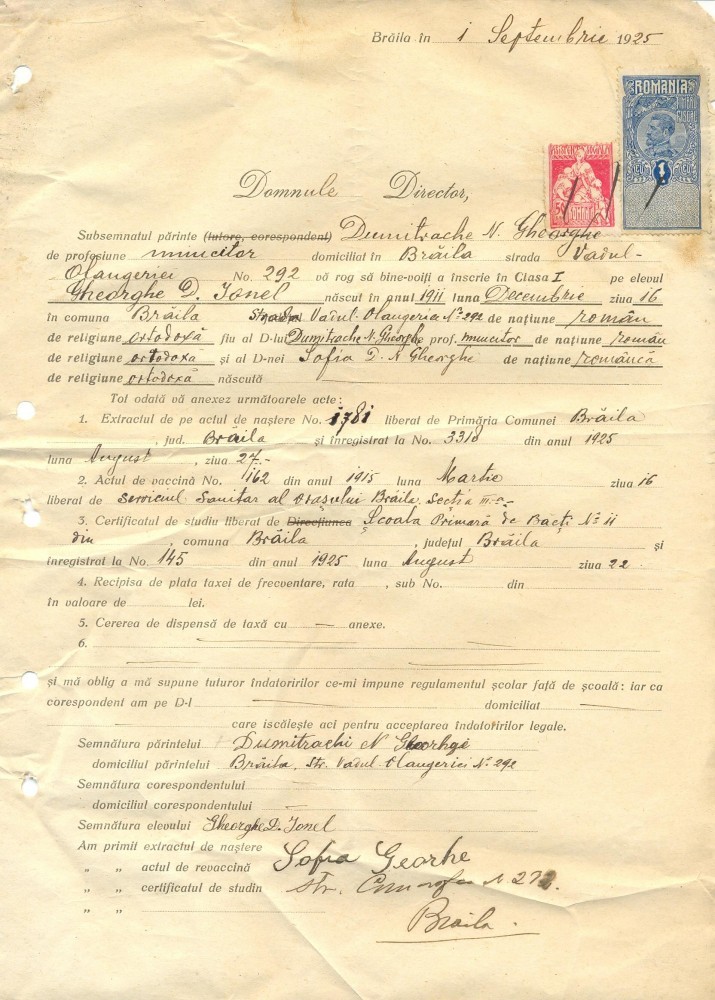 Brăila în 1 Septembrie 1925
ROMANIA
TIMBRU FISCAL
1
Domnule Director,
Subsemnatul părinte (tutore, corespondent) Dumitrache N. Gheorghe
de profesiune muncitor domiciliat în Brăila strada Vadul-
Olangeriei No. 292 vă rog să bine-voiți a înscrie în Clasa I pe elevul
Gheorghe D. Jonel născut în anul 1911 luna Decembrie ziua 16
în comuna Brăila Strada Vadul Olangeriei No 292 de națiune român
de religiune ortodoxă fiu al D-lui Dumitrache N. Gheorghe prof. muncitor de națiune român
de religiune ortodoxă și al D-nei Sofia D. N Gheorghe de națiune româncă
de religiune ortodoxă născută
Tot odată vă anexez următoarele acte :
1. Extractul de pe actul de naștere No. 1781 liberat de Primăria Comunei Brăila
, jud. Brăila și înregistrat la No. 3318 din anul 1925
luna August , ziua 27.-
2. Actul de vaccină No. 1162 din anul 1915 luna Martie ziua 16
liberat de serviciul Sanitar al orașului Brăila Secția III-a-
3. Certificatul de studiu liberat de Direcțiunea Școala Primară de Băeți No 11
din , comuna Brăila , județul Brăila și
înregistrat la No. 145 din anul 1925 luna August ziua 22
4. Recipisa de plata taxei de frecventare, rata , sub No. din
în valoare de lei.
5. Cererea de dispensă de taxă cu — anexe.
6.
și mă oblig a mă supune tuturor îndatoririlor ce-mi impune regulamentul școlar față de școală : iar ca
corespondent am pe D-l domiciliat
care iscălește aci pentru acceptarea îndatoririlor legale.
Semnătura părintelui Dumitrachi N Gheorhge
domiciliul părintelui Brăila, Str. Vadul-Olangeriei No. 292
Semnătura corespondentului
domiciliul corespondentului —
Semnătura elevului Gheorghe D. Jonel
Am primit extractul de naștere Sofia Georhe
„ „ actul de revaccină
„ „ certificatul de studiu str. N 292.
„ „ Brăila.